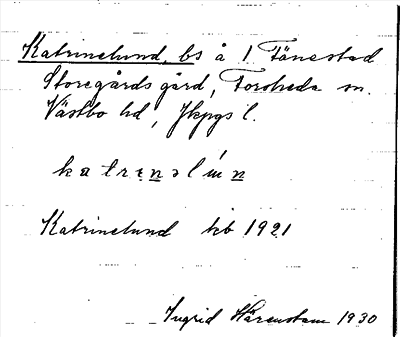 Katrinelund, bs å 1 Tånestad
Storegårds gård, Forsheda sn.
Västbo hd, Jkpgs l.
katrinəlún
Katrinelund kb 1921
Ingrid Hårenstam 1930